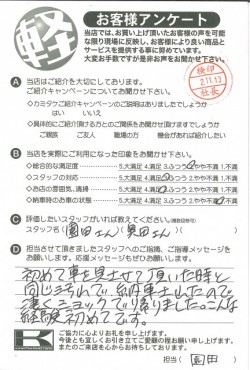 軽
お客様アンケート
当店では、お買い上げ頂いたお客様の声を可能な限り現場に反映し、お客様により良い商品とサービスを提供する事に努めています。
大変お手数ですが是非お声をお聞かせ下さい。
検印
2.11.13
社長
A 当店はご紹介を大切にしております。
ご紹介キャンペーンについてお聞かせ下さい。
・カミタケご紹介キャンペーンのご説明はありましたでしょうか
はい いいえ
・具体的にご紹介頂ける方とのご関係をお聞かせ頂けますでしょうか
ご親族 ご友人 職場の方 機会があれば紹介したい
B 当店を実際にご利用になった印象をお聞かせ下さい。
・総合的な満足度 5.大満足 4.満足 3.ふつう 2.やや不満 1.不満
・スタッフの対応 5.大満足 4.満足 3.ふつう 2.やや不満 1.不満
・お店の雰囲気、清掃 5.大満足 4.満足 3.ふつう 2.やや不満 1.不満
・納車時のお車の状態 5.大満足 4.満足 3.ふつう 2.やや不満 1.不満
C 評価したいスタッフがいれば教えてください。
スタッフ名(園田さん)(奥田さん)
D 担当させて頂きましたスタッフへのご指摘、ご指導メッセージをお願い致します。応援メッセージもぜひお願い致します。
初めて車を見させて頂いた時と
同じキズ
凄くショックで
経験初めてです。
K
ご協力に心よりお礼を申し上げます。
今後とも宜しくお引き立てご愛顧の程お願い申し上げます。
またのご来店を心からお待ちしております。
担当(園田)